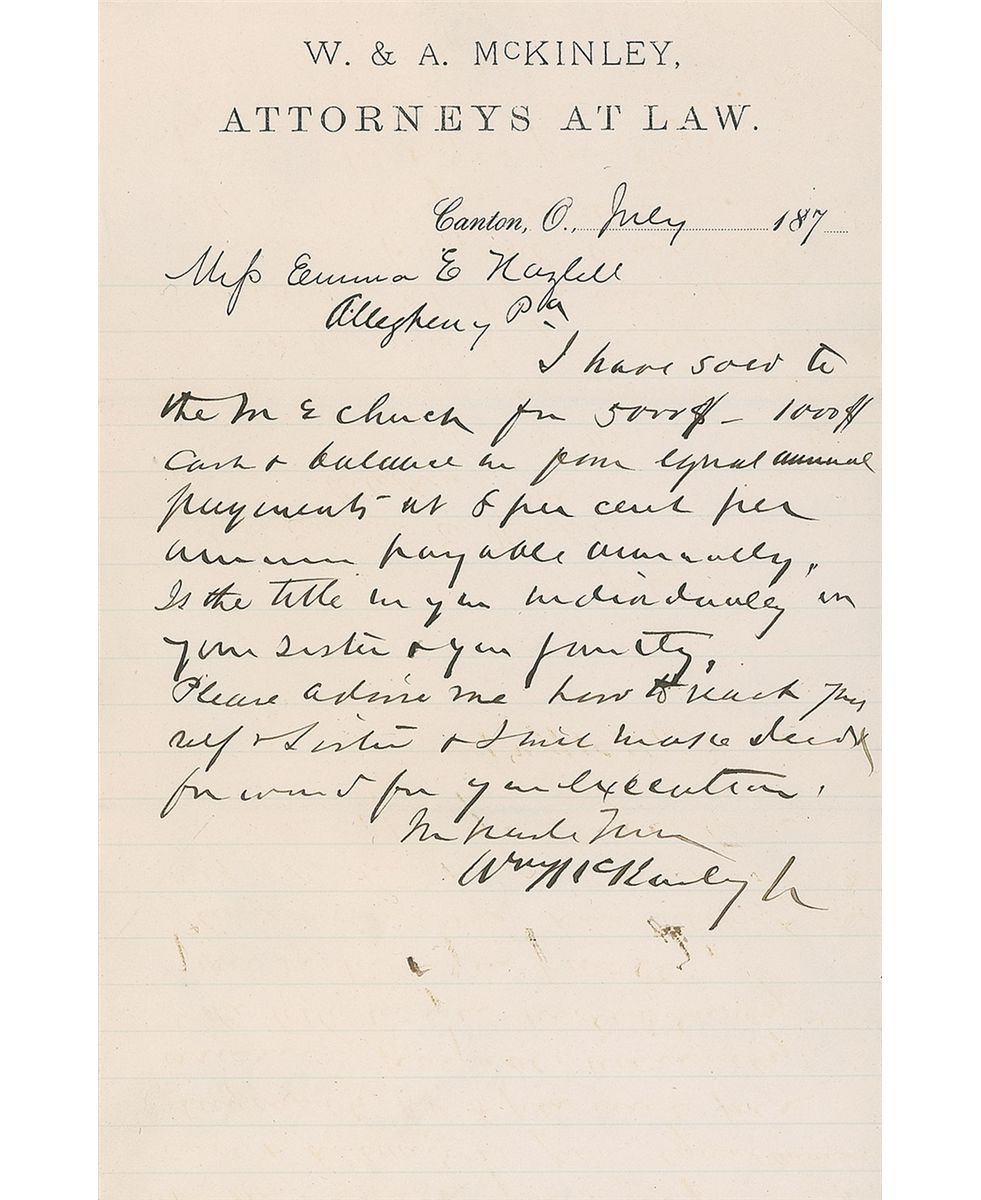 W. & A. McKINLEY,
ATTORNEYS AT LAW.
Canton, O., July 187
Miss Emma E Hazlett
Allegheny Pa
I have sold to
the M E Church for 5000$ - 1000$
cash & balance in four equal annual
payments at 8 per cent per
annum payable annually,
Is the title in you individually or in
your sister & you jointly,
Please advise me how to reach your
self & sister & I will make deed &
forward for your execution.
Yours
Wm McKinley Jr